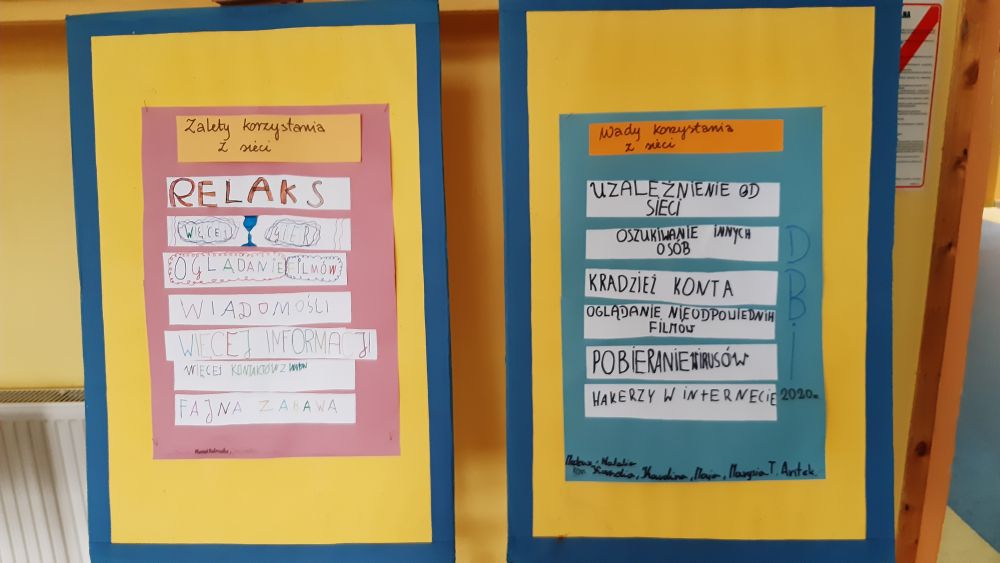 Zalety korzystania
z sieci
RELAKS
WIĘCEJ GIER
OGLĄDANIE FILMÓW
WIADOMOŚCI
WIĘCEJ INFORMACJI
WIĘCEJ KONTAKTÓW Z
FAJNA ZABAWA
Wady korzystania
z sieci
UZALEŻNIENIE OD
SIECI
OSZUKIWANIE INNYCH
OSÓB
KRADZIEŻ KONTA
OGLĄDANIE NIEODPOWIEDNIH
FILMÓW
POBIERANIE WIRUSÓW
HAKERZY W INTERNECIE
DBI
2020r.
Natalia
Sandra, Karolina, Maja, Marysia T. Antek